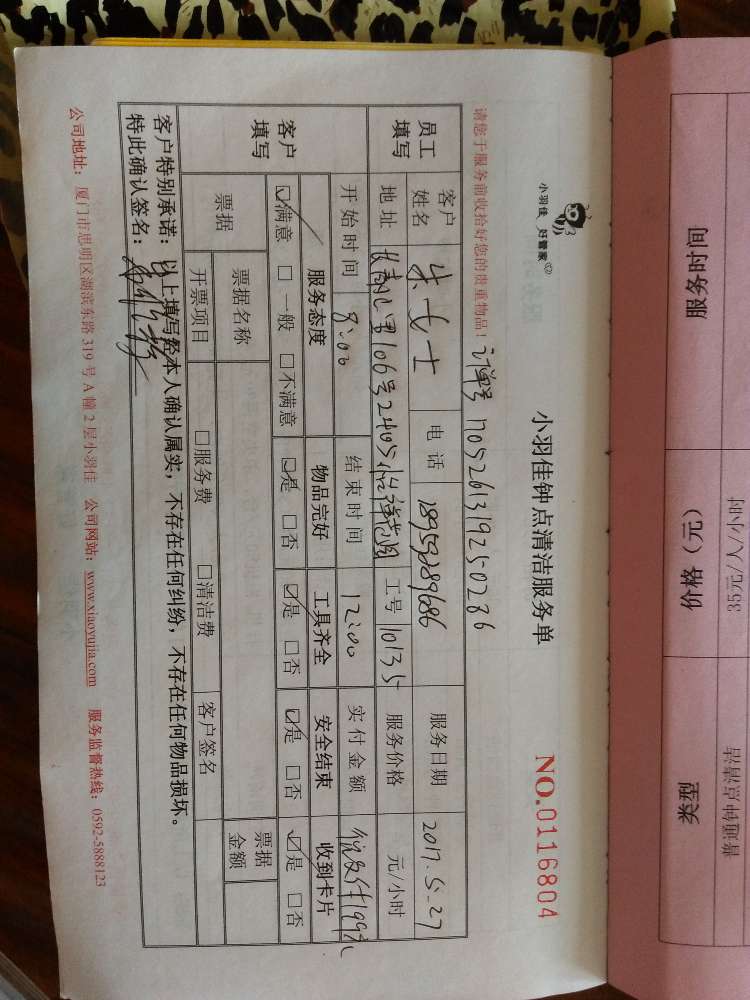 小羽佳 好管家
小羽佳钟点清洁服务单
NO.0116804
请您于服务前收拾好您的贵重物品！
订单号 170526131925 0236
员工填写
客户姓名 朱女士 电话 18953289686 服务日期 2017.5.27
地址 106号2405 工号 10135 服务价格 元/小时
开始时间 8:00 结束时间 12:00 实付金额 199元
客户填写
服务态度 物品完好 工具齐全 安全结束 收到卡片
☑满意 □一般 □不满意 ☑是 □否 ☑是 □否 ☑是 □否 ☑是 □否
票据 票据名称 票据金额
开票项目 □服务费 □清洁费 客户签名
客户特别承诺：以上填写经本人确认属实，不存在任何纠纷，不存在任何物品损坏。
特此确认签名：
公司地址：厦门市思明区湖滨东路 319 号 A 幢 2 层小羽佳 公司网站：www.xiaoyujia.com 服务监督热线：0592-5888123
类型 价格（元） 服务时间
普通钟点清洁 35元/人/小时